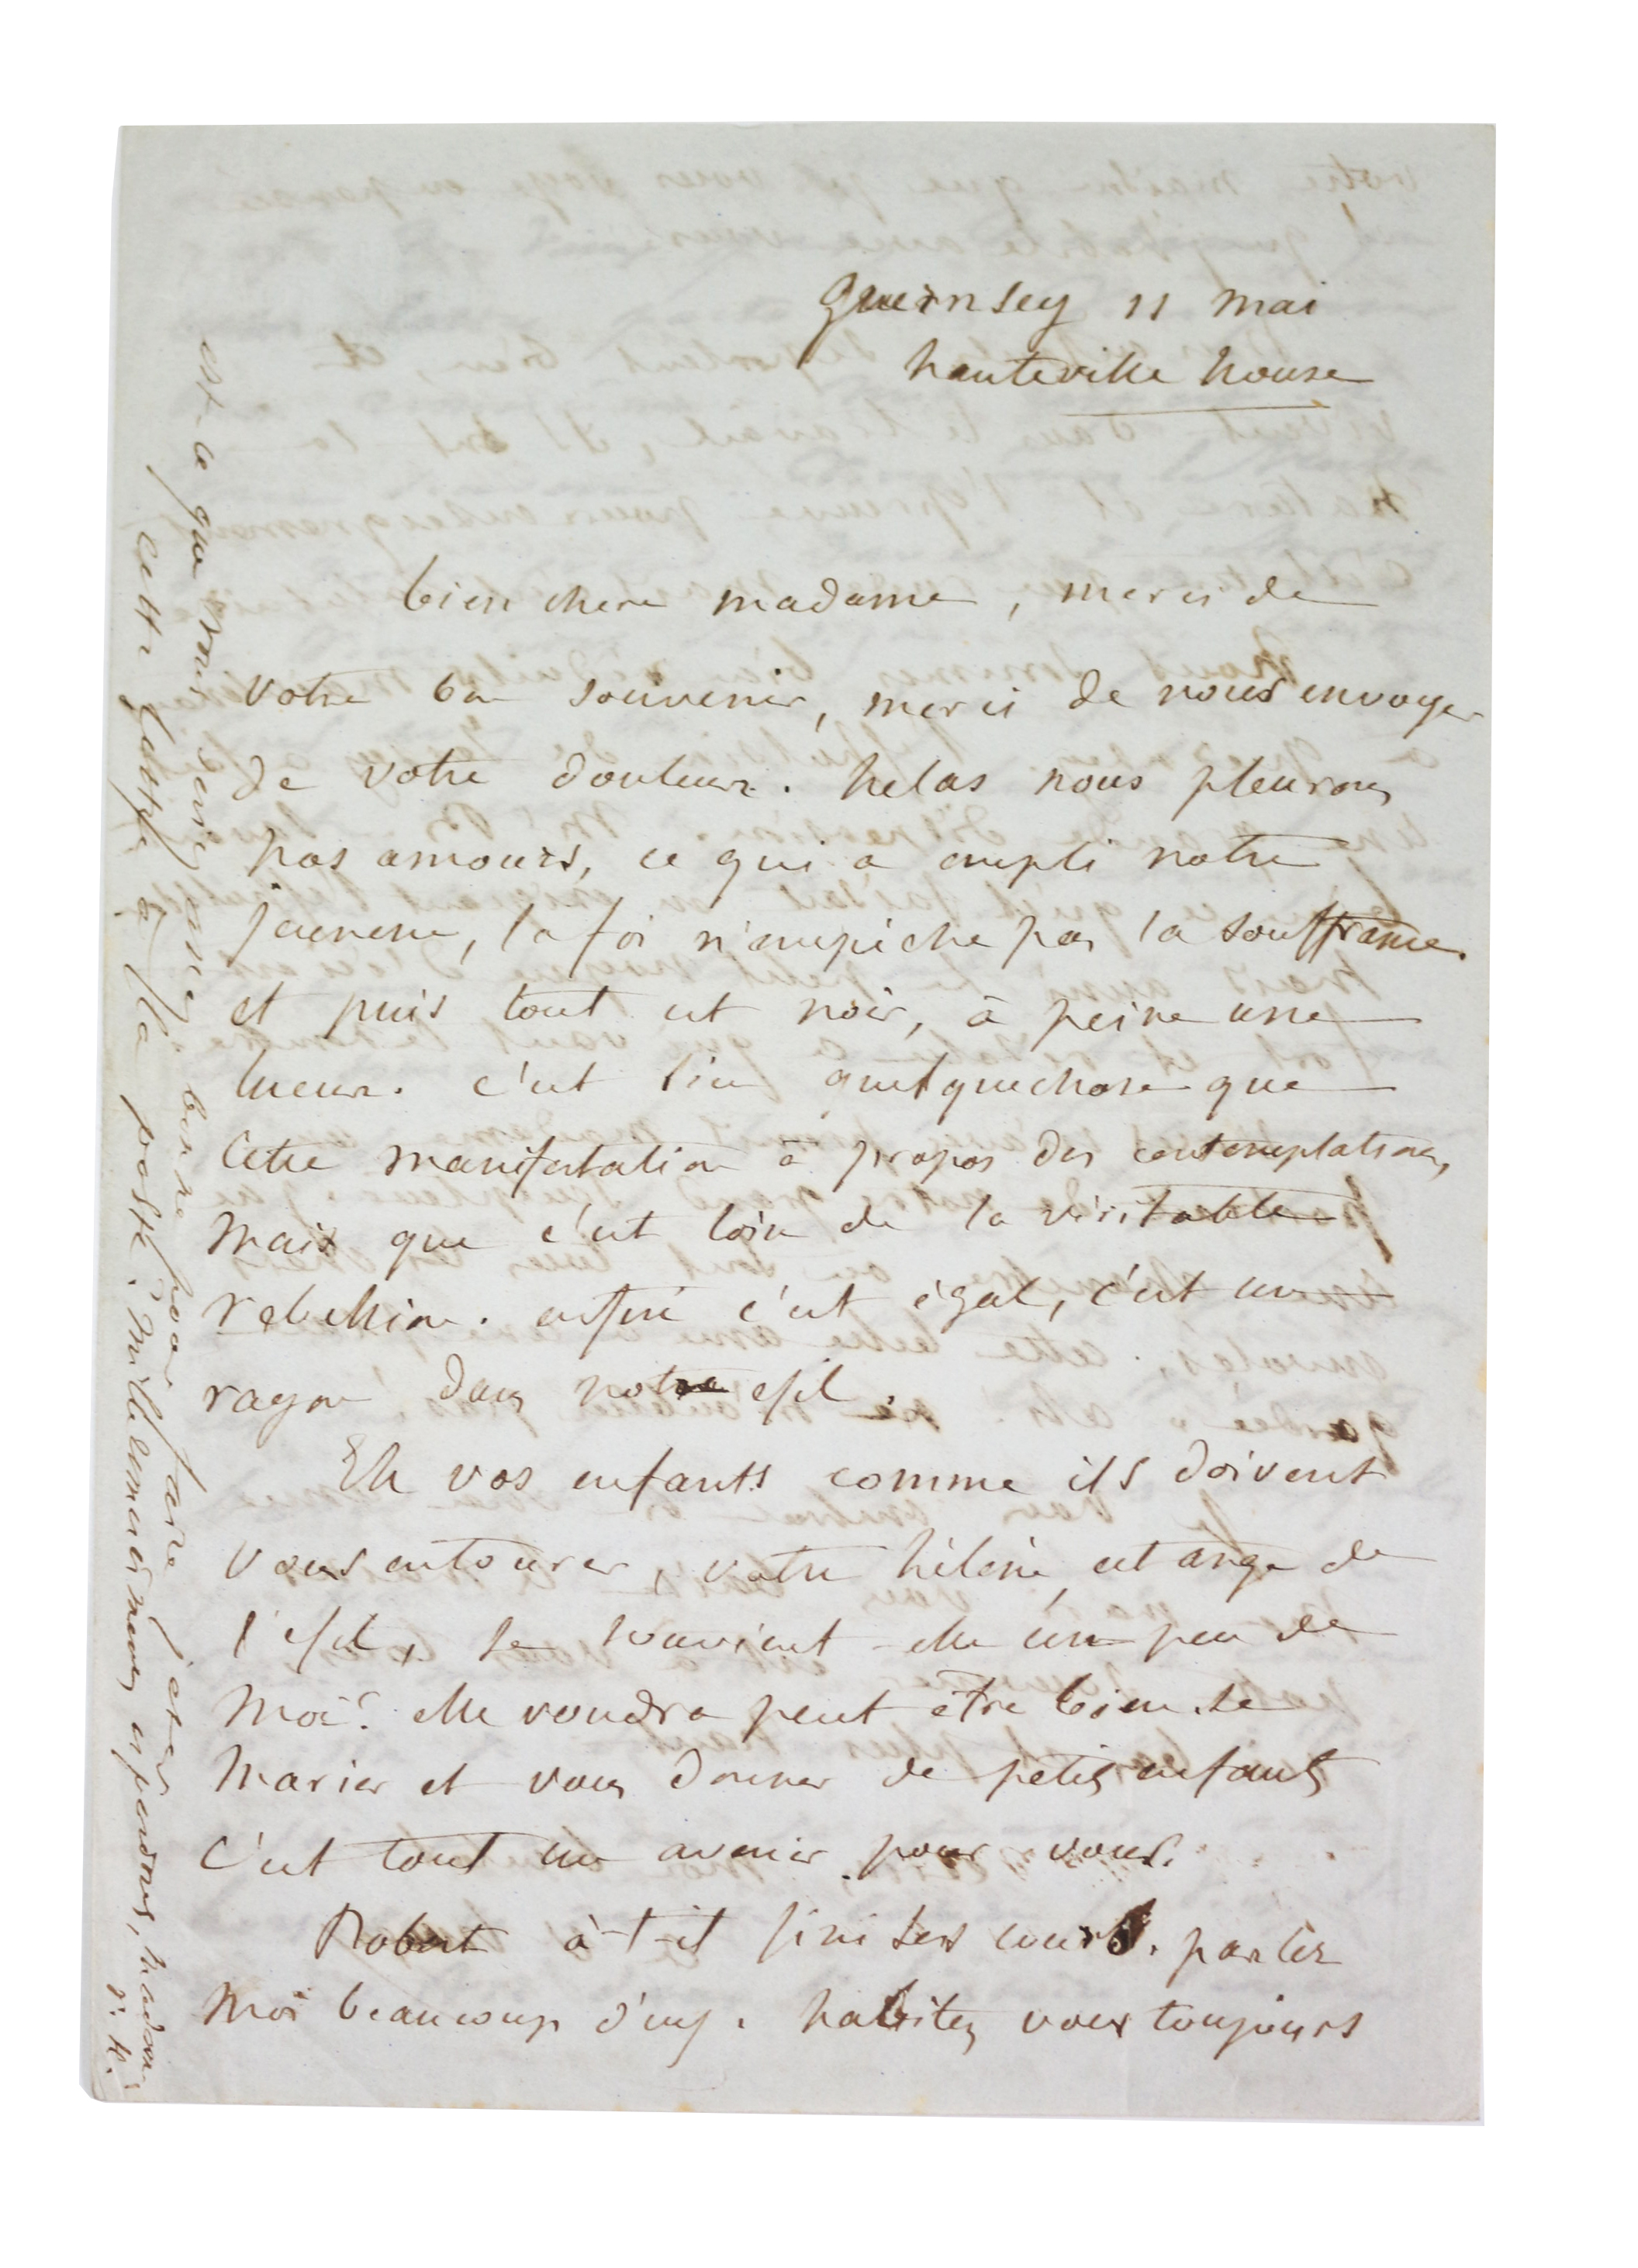 Guernsey 11 mai
hauteville house
bien chere madame, merci de
votre bon souvenir, merci de nous envoyer
de votre douleur. helas nous pleurons
nos amours, ce qui a empli notre
jeunesse, la foi n'empêche pas la souffrance.
et puis tout est noir, à peine une
lueur. c'est bien quelquechose que
cette manifestation à propos des contemplations,
mais que c'est loin de la véritable
rebellion. enfin c'est égal, c'est un
rayon dans notre exil.
Et vos enfants comme ils doivent
vous entourer, votre hélène, cet ange de
l'exil, se souvient-elle un peu de
moi? elle voudra peut être bien se
marier et vous donner de petits enfants
c'est tout un avenir pour vous.
Robert à-t-il fini ses cours. parlez
moi beaucoup d'eux. habitez vous toujours
est-ce que vous seriez assez bonne pour faire jeter
cette lettre à la poste. mille remerciemens et pardons, madame